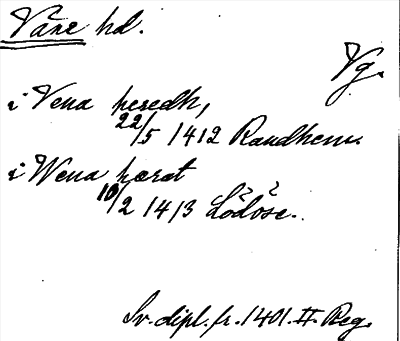 Väne hd.
Vg.
i Vena heredh,
22/5 1412 Randhem.
i Wena hærat
10/2 1413 Lödöse.
Sv. dipl. fr. 1401. II. Reg.